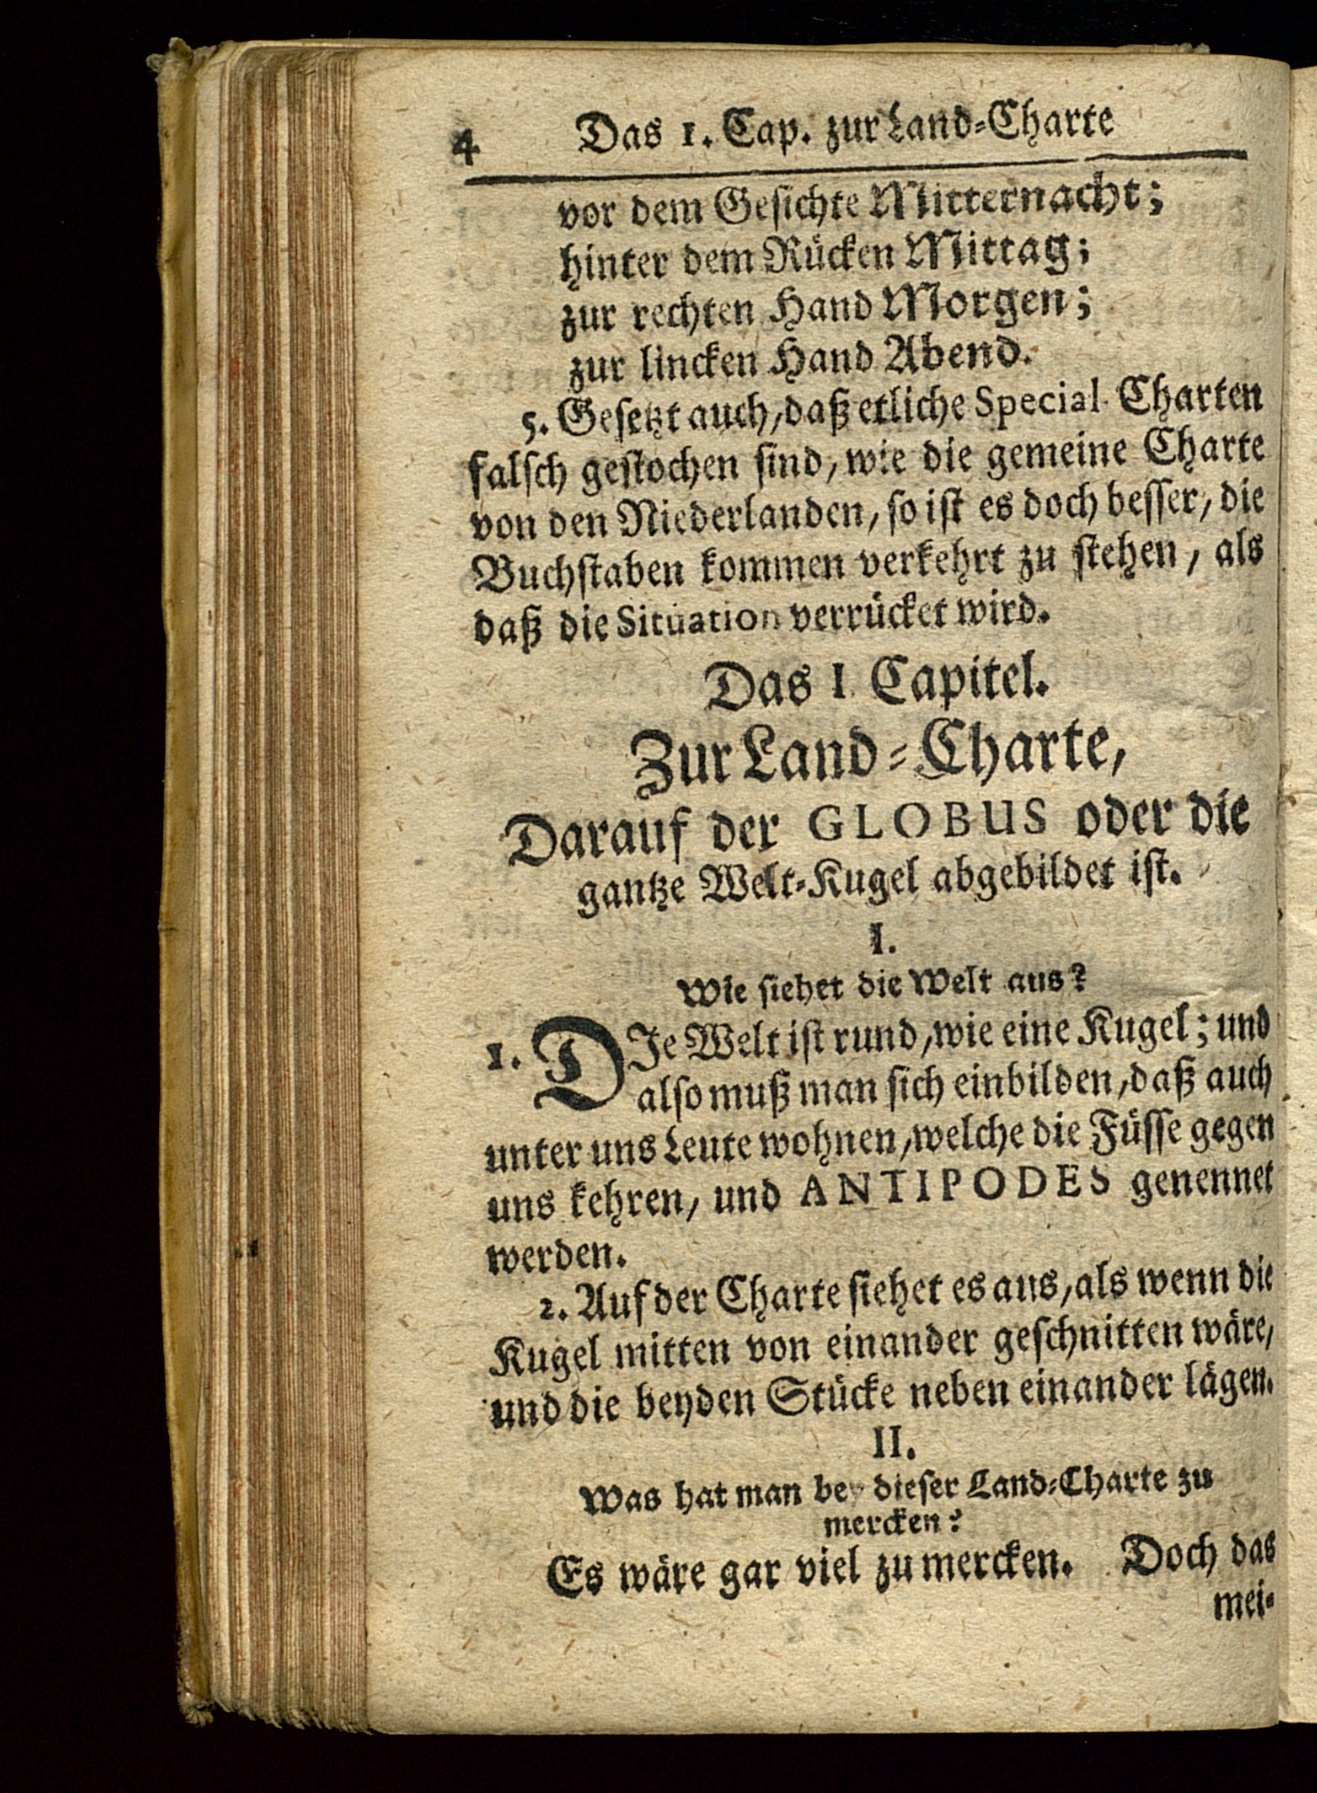 4 Das 1. Cap. zur Land-Charte
vor dem Gesichte Mitternacht;
hinter dem Rücken Mittag;
zur rechten Hand Morgen;
zur lincken Hand Abend.
5. Gesetzt auch, daß etliche Special Charten
falsch gestochen sind, wie die gemeine Charte
von den Niederlanden, so ist es doch besser, die
Buchstaben kommen verkehrt zu stehen, als
daß die Situation verrücket wird.
Das I Capitel.
Zur Land-Charte,
Darauf der GLOBUS oder die
gantze Welt-Kugel abgebildet ist.
I.
Wie siehet die Welt aus?
1. DIe Welt ist rund, wie eine Kugel; und
also muß man sich einbilden, daß auch
unter uns Leute wohnen, welche die Füsse gegen
uns kehren, und ANTIPODES genennet
werden.
2. Auf der Charte siehet es aus, als wenn die
Kugel mitten von einander geschnitten wäre,
und die beyden Stücke neben einander lägen.
II.
Was hat man bey dieser Land-Charte zu
mercken?
Es wäre gar viel zu mercken. Doch das
mei-